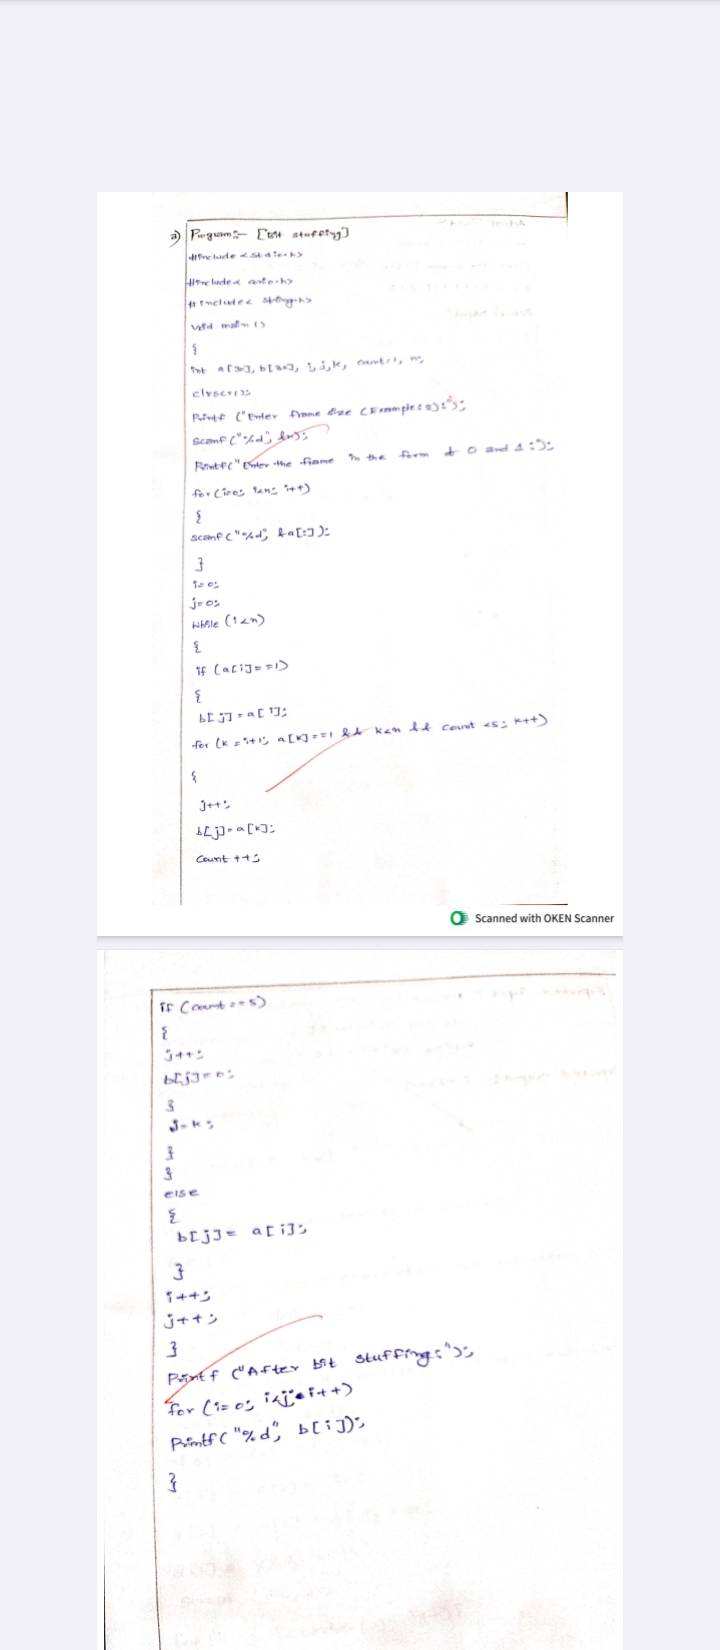 a) Program:- [Bit stuffing]
#include <stdio.h>
#include< conio.h>
# include< string.h>
void main ()
{
int a [30], b [30], i, j, k, count=1, n;
clrscr();
Printf ("Enter frame size (Example: 8):");
Scanf ("%d", &n);
Printf("Enter the frame in the form of 0 and 1 :);
for (i=0; i<n; i++)
{
scanf ("%d", &a[i]);
}
i=0;
j=0;
While (i<n)
{
if (a[i]==1)
{
b[j]=a[i];
for (k=i+1; a[k]==1 && k<n && count <5; k++)
{
j++;
b[j]=a[k];
Count ++;
Scanned with OKEN Scanner
if (count ==5)
{
j++;
b[j]=0;
}
i=k;
}
}
else
{
b[j]= a[i];
}
i++;
j++;
}
Printf ("After bit stuffing:");
for (i=0; i<j; i++)
Printf("%d", b[i]);
}